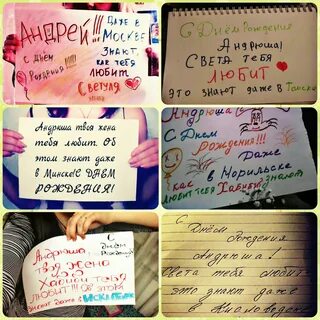 АНДРЕЙ!!!
ДАЖЕ В
МОСКВЕ
ЗНАЮТ,
КАК ТЕБЯ
ЛЮБИТ
Светуля
С Днём
Рождения!!!
С Днём Рождения
Андрюша!
СВЕТА ТЕБЯ
ЛЮБИТ
ЭТО ЗНАЮТ ДАЖЕ В Томске
Андрюша твоя жена
тебя любит. Об
этом знают даже
в Минске!С ДНЕМ
РОЖДЕНИЯ!
Андрюша!
С Днем
РОЖДЕНИЯ!!!
Даже
в Норильске
знают
как
ЛЮБИТ ТЕБЯ
С
Днём
Рождения
Андрюша
твоя жена
тебя
ЛЮБИТ!!! ОБ ЭТОМ
знают даже в
С
Днём
Рождения
Андрюша!
Света тебя любит
это знают даже
в Кисловодске